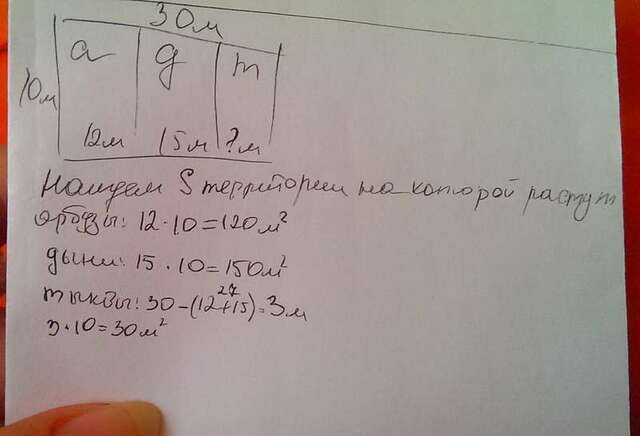 30м
а д т
10м
12м 15м ?м
Найдем S территории на которой растут
арбузы: 12 · 10 = 120 м²
дыни: 15 · 10 = 150 м²
27
тыквы: 30 - (12 + 15) = 3 м
3 · 10 = 30 м²